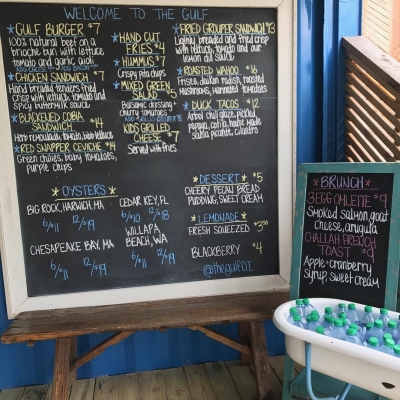 WELCOME TO THE GULF
GULF BURGER $7
100% natural beef on a
brioche bun with lettuce
tomato and garlic aioli
ADD CHEESE ADD BACON
CHICKEN SANDWICH $7
Hand breaded tenders fried
crisp with lettuce, tomato and
spicy buttermilk sauce
BLACKENED COBIA
SANDWICH $14
Herb remoulade, tomato, bibb lettuce
RED SNAPPER CEVICHE $14
Green chilies, baby tomatoes,
purple chips
HAND CUT
FRIES $4
HUMMUS $7
Crispy pita chips
MIXED GREEN
SALAD $5
Balsamic dressing +
cherry tomatoes
KIDS GRILLED
CHEESE $7
Served with fries
FRIED GROUPER SANDWICH $13
Lightly breaded and fried crisp
with lettuce, tomato and our
lemon dill sauce
ROASTED WAHOO $16
Frisee, daikon radish, roasted
mushrooms, marinated tomatoes
DUCK TACOS $12
Arbol chili glaze, pickled
papaya, cotija, house made
salsa picante, cilantro
OYSTERS
BIG ROCK, HARWICH, MA
6/$11 12/$19
CHESAPEAKE BAY, MA
6/$11 12/$19
CEDAR KEY, FL
6/$10 12/$18
WILLAPA
BEACH, WA
6/$11 12/$19
DESSERT $5
CHERRY PECAN BREAD
PUDDING, SWEET CREAM
LEMONADE
FRESH SQUEEZED $3.50
BLACKBERRY $4
@THEGULFOI
BRUNCH
3 EGG OMLETTE $9
Smoked salmon, goat
cheese, arugula
CHALLAH FRENCH
TOAST $9
Apple + cranberry
syrup, sweet cream